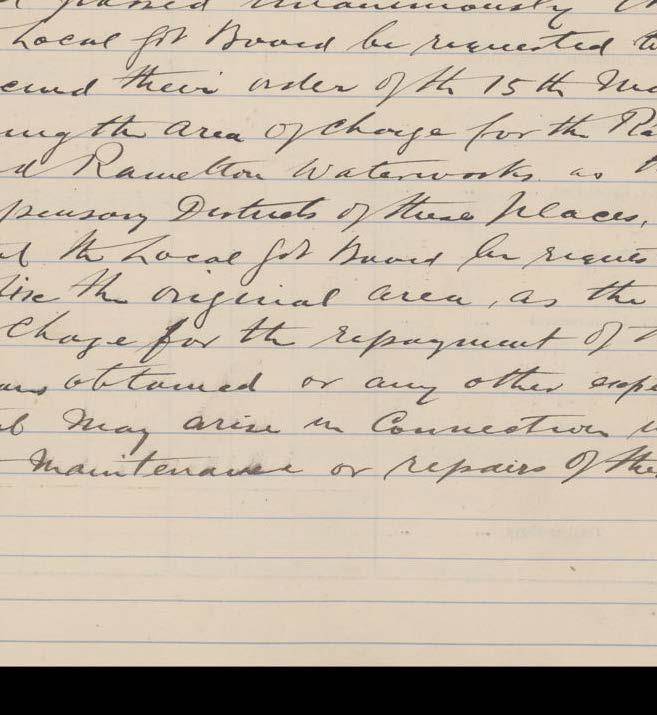 passed unanimously
Local Gvt Board be requested to
their order of th 15th
ing the area of charge for the Ra
d Ramelton Waterworks as
pensary Districts of these places,
the Local Gvt Board be reques
the original area, as the
Charge for the repayment of
obtained or any other expe
may arise in Connection
Maintenance or repairs of the